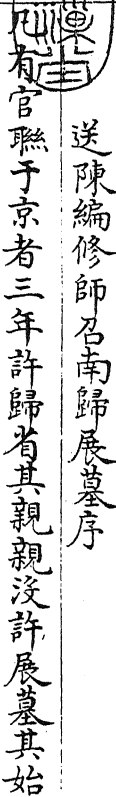 送陳編修師召南歸展墓序
凡有官聯于京者三年許歸省其親親沒許展墓其始